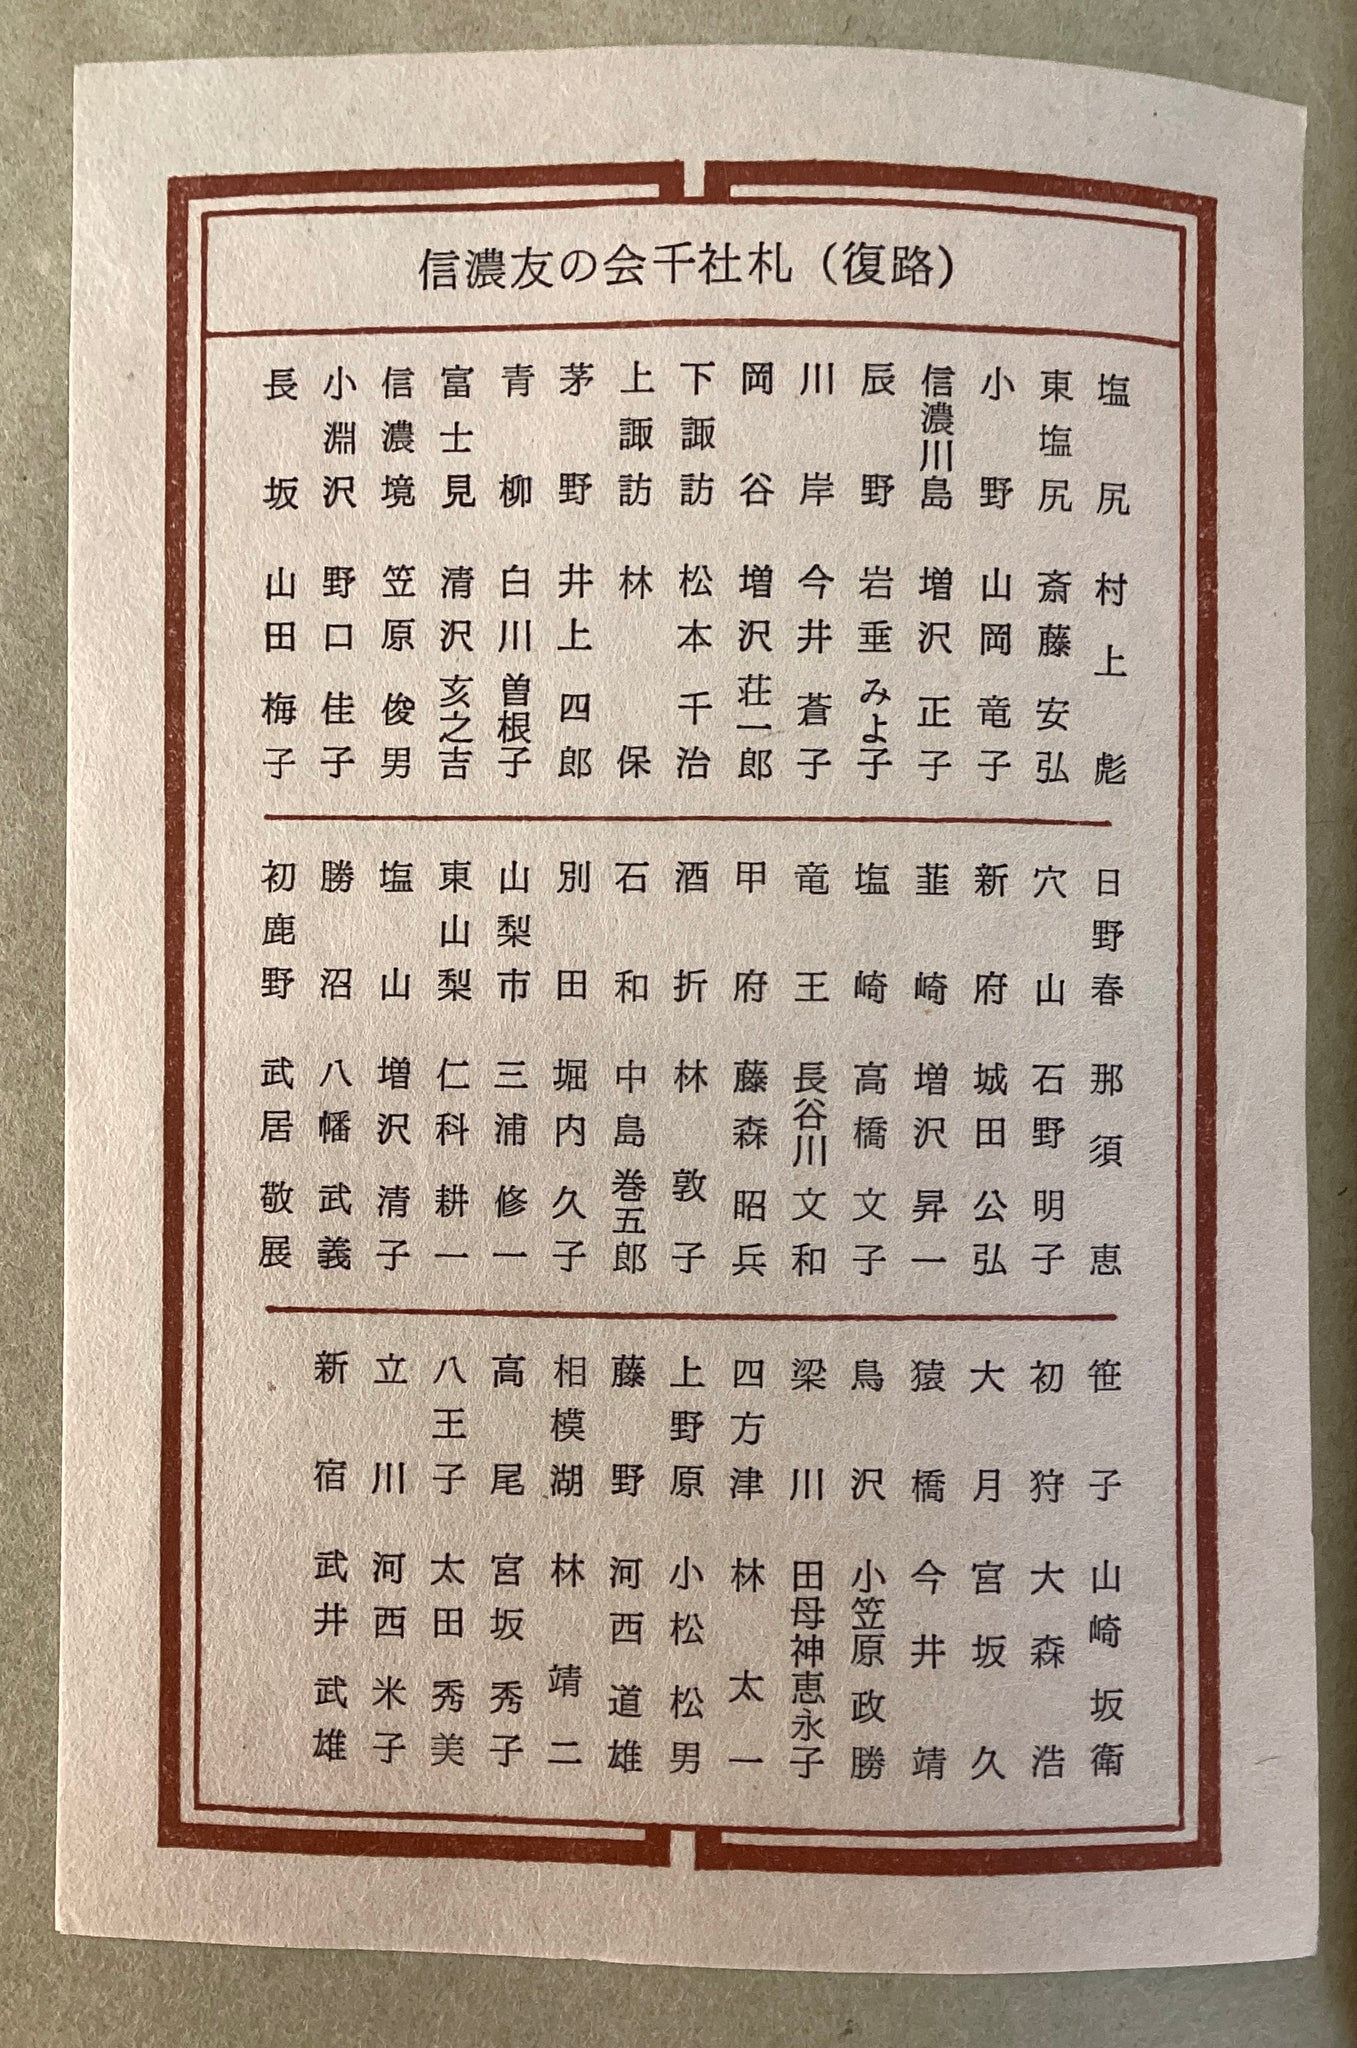 信濃友の会千社札（復路）
塩尻 村上彪
東塩尻 斎藤安弘
小野 山岡竜子
信濃川島 増沢正子
辰野 岩垂みよ子
川岸 今井蒼子
岡谷 増沢荘一郎
下諏訪 松本千治
上諏訪 林保
茅野 井上四郎
青柳 白川曽根子
富士見 清沢亥之吉
信濃境 笠原俊男
小淵沢 野口佳子
長坂 山田梅子
日野春 那須恵
穴山 石野明子
新府 城田公弘
韮崎 増沢昇一
塩崎 高橋文子
竜王 長谷川文和
甲府 藤森昭兵
酒折 林敦子
石和 中島巻五郎
別田 堀内久子
山梨市 三浦修一
東山梨 仁科耕一
塩山 増沢清子
勝沼 八幡武義
初鹿野 武居敬展
笹子 山崎坂衛
初狩 大森浩
大月 宮坂久
猿橋 今井靖
鳥沢 小笠原政勝
梁川 田母神恵永子
四方津 林太一
上野原 小松松男
藤野 河西道雄
相模湖 林靖二
高尾 宮坂秀子
八王子 太田秀美
立川 河西米子
新宿 武井武雄